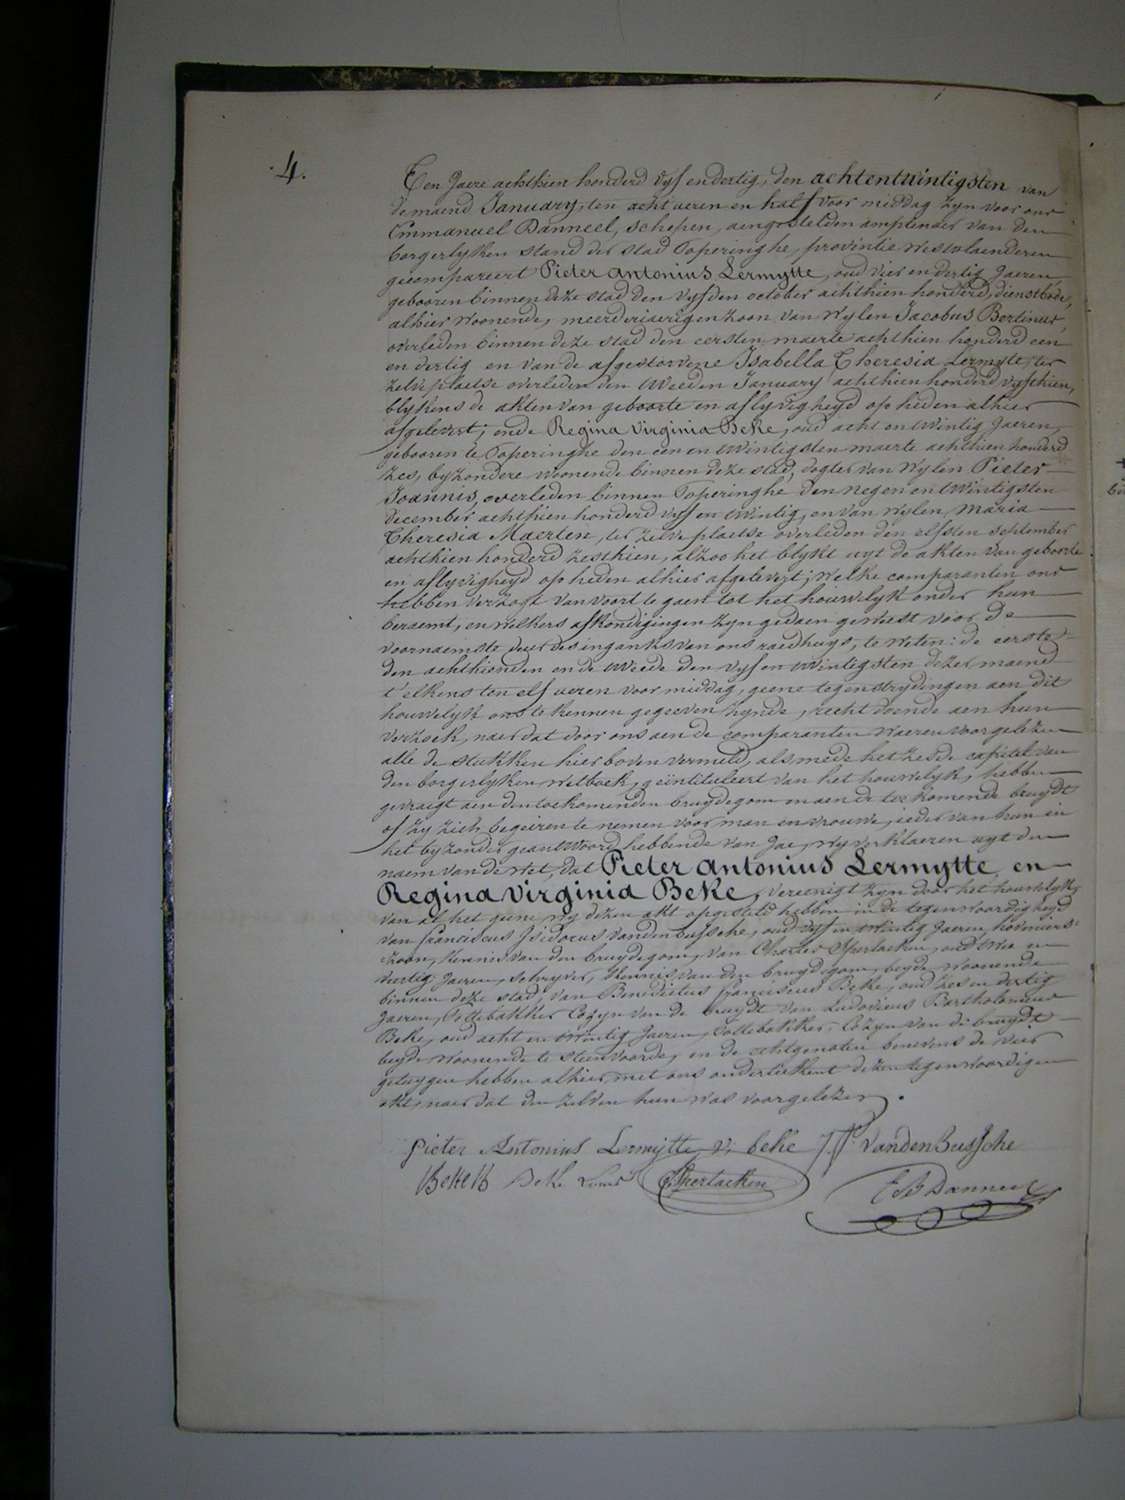 4.
Ten Jaere achthien honderd vyf en dertig, den achtentwintigsten van
de maend January, ten acht ueren en half voor middag zyn voor ons
Emmanuel Danneel, schepen, aengestelden amptenaer van den
borgerlyken stand der stad Poperinghe, provintie westvlaenderen
gecompareert Pieter Antonius Lermytte, oud vier en dertig Jaeren,
gebooren binnen deze stad den vyfden october achthien honderd, dienstbode,
alhier woonende, meerderjaerigen zoon van wylen Jacobus Bertinus,
overleden binnen deze stad den eersten maerte achthien honderd een
en dertig en van de afgestorvene Isabella Theresia Lermyte, ter
zelve plaetse overleden den tweeden January achthien honderd vyfthien,
blykens de akten van geboorte en aflyvigheyd op heden alhier
afgelevert; ende Regina Virginia Beke, oud acht en twintig Jaeren,
gebooren te Poperinghe den een en twintigsten maerte achthien honderd
zes, byzondere woonende binnen deze stad, dogter van wylen Pieter
Joannis, overleden binnen Poperinghe den negen en twintigsten
december achthien honderd vyf en twintig, en van wylen Maria
Theresia Maerten, ter zelve plaetse overleden den elfsten september
achthien honderd zesthien, alzoo het blykt uyt de akten van geboorte
en aflyvigheyd op heden alhier afgelevert; welke comparanten ons
hebben verzogt van voort te gaen tot het houwelyk onder hun
beraemt, en welkers afkondigingen zyn gedaen geweest voor de
voornaemste deur des ingangks van ons raedhuys, te weten: de eerste
den achthienden en de tweede den vyf en twintigsten dezer maend
t'elkens ten elf ueren voor middag, geene tegenstrydingen aen dit
houwelyk ons te kennen gegeeven zynde, recht doende aen hun
verzoek, naer dat door ons aen de comparanten waeren voorgelezen
alle de stukken hier boven vermeld, als mede het zesde capitel van
den borgerlyken wetboek, geïntituleert van het houwelyk, hebben
gevraegt aen den toekomenden bruydegom en aen de toekomende bruydt
of zy zich begeiren te nemen voor man en vrouwe, ieder van hun in
het byzonder geantwoord hebbende van Jae, wy verklaeren uyt den
naem van de wet, dat Pieter Antonius Lermytte, en
Regina Virginia Beke, vereenigt zyn door het houwelyk,
van al het geene wy dezen akt opgesteld hebben in de tegenwoordigheyd
van franciscus Isidorus vanden Bussche, oud vyf en twintig Jaeren, hoveniers
zoon, kennis van den bruydegom, van Charles Sperlaeken, oud twee en
veertig Jaeren, schryver, kennis van den bruydegom, beyde woonende
binnen deze stad, van Benedictus franciscus Beke, oud zes en dertig
Jaeren, Pottebakker Cozyn van de bruydt van Ludovicus Bartholomeus
Beke, oud acht en twintig Jaeren, Pottebakker, Cozyn van de bruydt
beyde woonende te Steenvoorde, en de echtgenoten benevens de vier
getuygen hebben alhier met ons onderteekent dezen tegenwoordigen
akt, naer dat den zelven hun was voorgelezen.
Pieter Antonius Lermytte v: beke F. J. VandenBussche
Beke B Beke Louis C Sperlaeken E Danneel